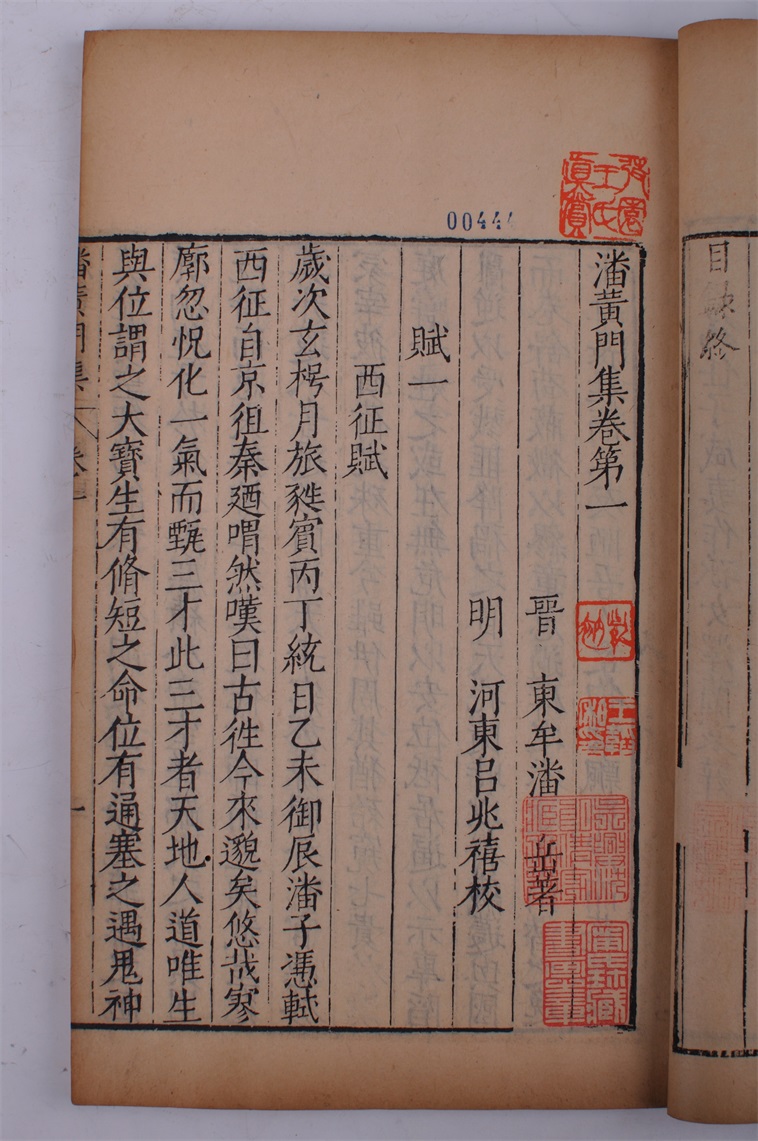 目錄終
00444
潘黃門集卷第一
晉 東牟潘 岳著
明 河東呂兆禧校
賦一
西征賦
歲次玄枵月旅蕤賓丙丁統日乙未御辰潘子憑軾
西征自京徂秦廼喟然嘆曰古徃今來邈矣悠哉寥
廓忽怳化一氣而甄三才此三才者天地人道唯生
與位謂之大寶生有脩短之命位有通塞之遇鬼神
潘黃門集 卷一
一